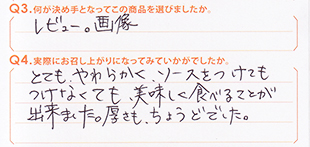 Q3.何が決め手となってこの商品を選びましたか。
レビュー。画像
Q4.実際にお召し上がりになってみていかがでしたか。
とてもやわらかく、ソースをつけても
つけなくても、美味しく食べることが
出来ました。厚さも、ちょうどでした。